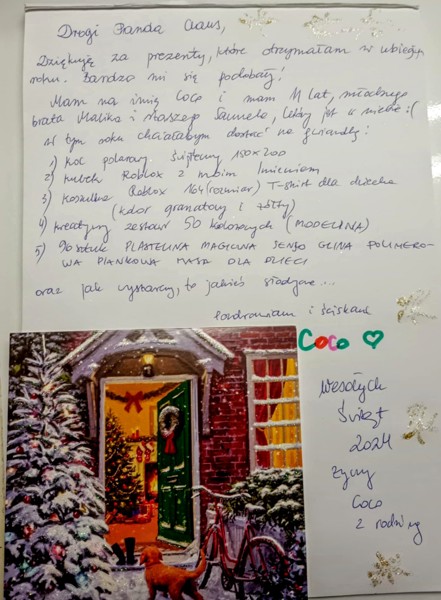 Drogi Panda Claus,
Dziękuję za prezenty, które otrzymałam w ubiegłym
roku. Bardzo mi się podobały!
Mam na imię Coco i mam 11 lat, młodszego
brata Malika i naszego, który jest w niebie :(
W tym roku chciałabym dostać na gwiazdkę:
1) Koc polarowy świąteczny 150x200
2) kubek Roblox z moim imieniem
3) koszulka Roblox 164 (rozmiar) T-shirt dla dziecka
(kolor granatowy i żółty)
4) kreatywny zestaw 50 kolorowych (MODELINA)
5) 90 sztuk PLASTELINA MAGICZNA SENSO GLINA POLIMERO-
WA PIANKOWA MASA DLA DZIECI
oraz jak wystarczy, to jakieś słodycze...
Pozdrawiam i ściskam
Coco
Wesołych
Świąt
2024
życzy
Coco
z rodziną